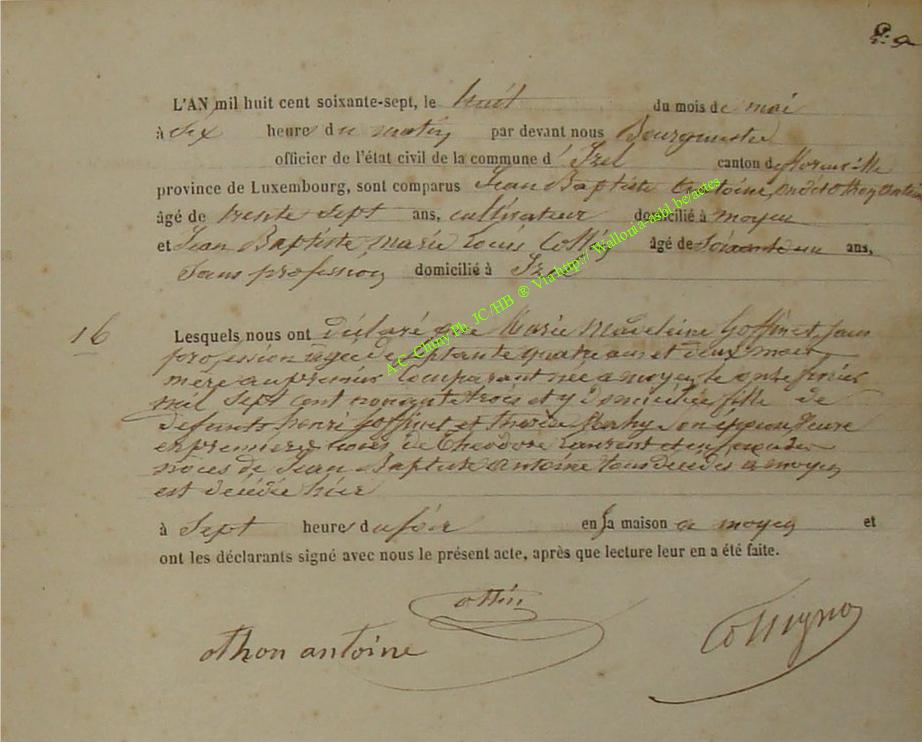 L'AN mil huit cent soixante-sept, le huit du mois de mai
à Six heure du matin par devant nous Bourgmestre
officier de l'état civil de la commune d' Izel canton de Florenville
province de Luxembourg, sont comparus Jean Baptiste Antoine,
âgé de trente Sept ans, cultivateur domicilié à moyen
et Jean Baptiste marie Louis âgé de Soixante un ans,
Sans profession domicilié à Izel
16
Lesquels nous ont déclaré que Marie Madeleine Goffinet, sans
profession agée de Septante quatre ans et deux mois
mère au premier Comparant née a moyen le onze février
mil Sept cent nonante trois et y domiciliée fille de
defunts henri Goffinet et therèse épouse
en premiere noces de Théodore Laurent et en secondes
noces de Jean Baptiste antoine tous décédés a moyen
est décédée hier
à Sept heure du soir en sa maison a moyen et
ont les déclarants signé avec nous le présent acte, après que lecture leur en a été faite.
othon antoine
A.C. Chiny Ph. JC/HB ® Via http://Wallonia-asbl.be/actes